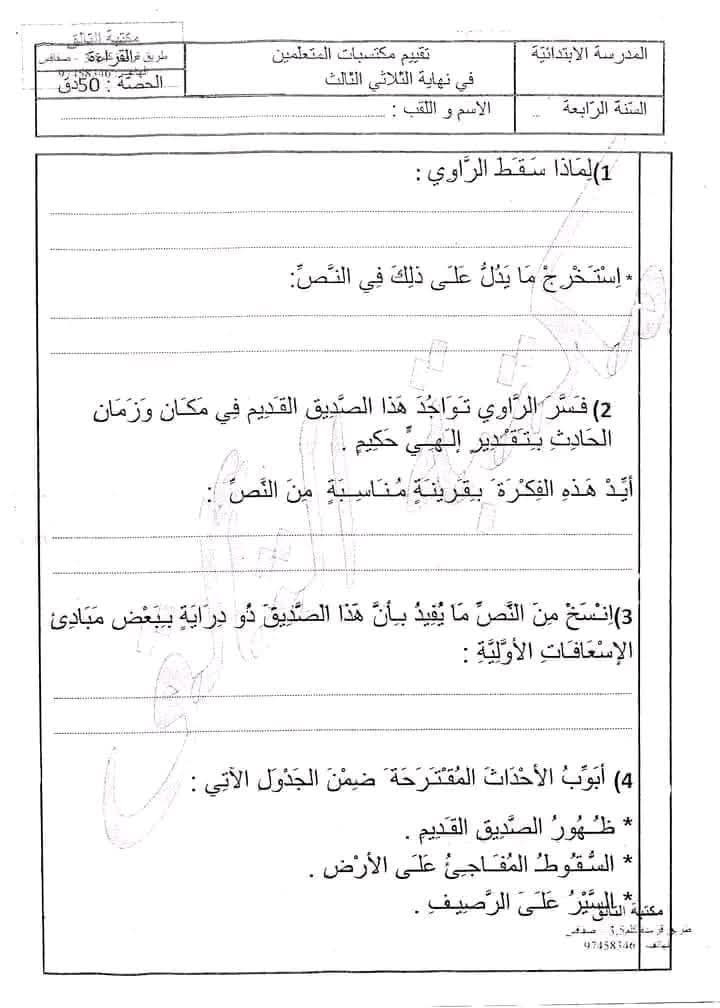 مكتبة التألق
المدرسة الابتدائيّة
تقييم مكتسبات المتعلمين
في نهاية الثلاثي الثالث
القراءة
الحصّة : 50دق
السّنة الرّابعة
الاسم و اللقب :
1)لِمَاذَا سَقَطَ الرَّاوِي :
* اِسْتَخْرِجْ مَا يَدُلُّ عَلَى ذلِكَ فِي النَّصِّ:
2) فَسَّرَ الرَّاوِي تَوَاجُدَ هَذَا الصَّدِيق القَدِيم فِي مَكَان وَزَمَان
الحَادِثِ بِتَقْدِيرٍ إلَهِيٍّ حَكِيمٍ .
أيِّدْ هَذِهِ الفِكْرَةَ بِقَرِينَةٍ مُنَاسِبَةٍ مِنَ النَّصِّ :
3)اِنْسَخْ مِنَ النَّصِّ مَا يُفِيدُ بِأنَّ هَذَا الصَّدِيقَ ذُو دِرَايَةٍ بِبَعْضِ مَبَادِئِ
الإسْعَافَاتِ الأوَّلِيَّةِ :
4) أبَوِّبُ الأحْدَاثَ المُقْتَرَحَةَ ضِمْنَ الجَدْوَلِ الآتِي :
* ظُهُورُ الصَّدِيقِ القَدِيمِ .
* السُّقُوطُ المُفَاجِئُ عَلَى الأرْضِ .
* السَّيْرُ عَلَىَ الرَّصِيفِ .
مكتبة التألق
97458346